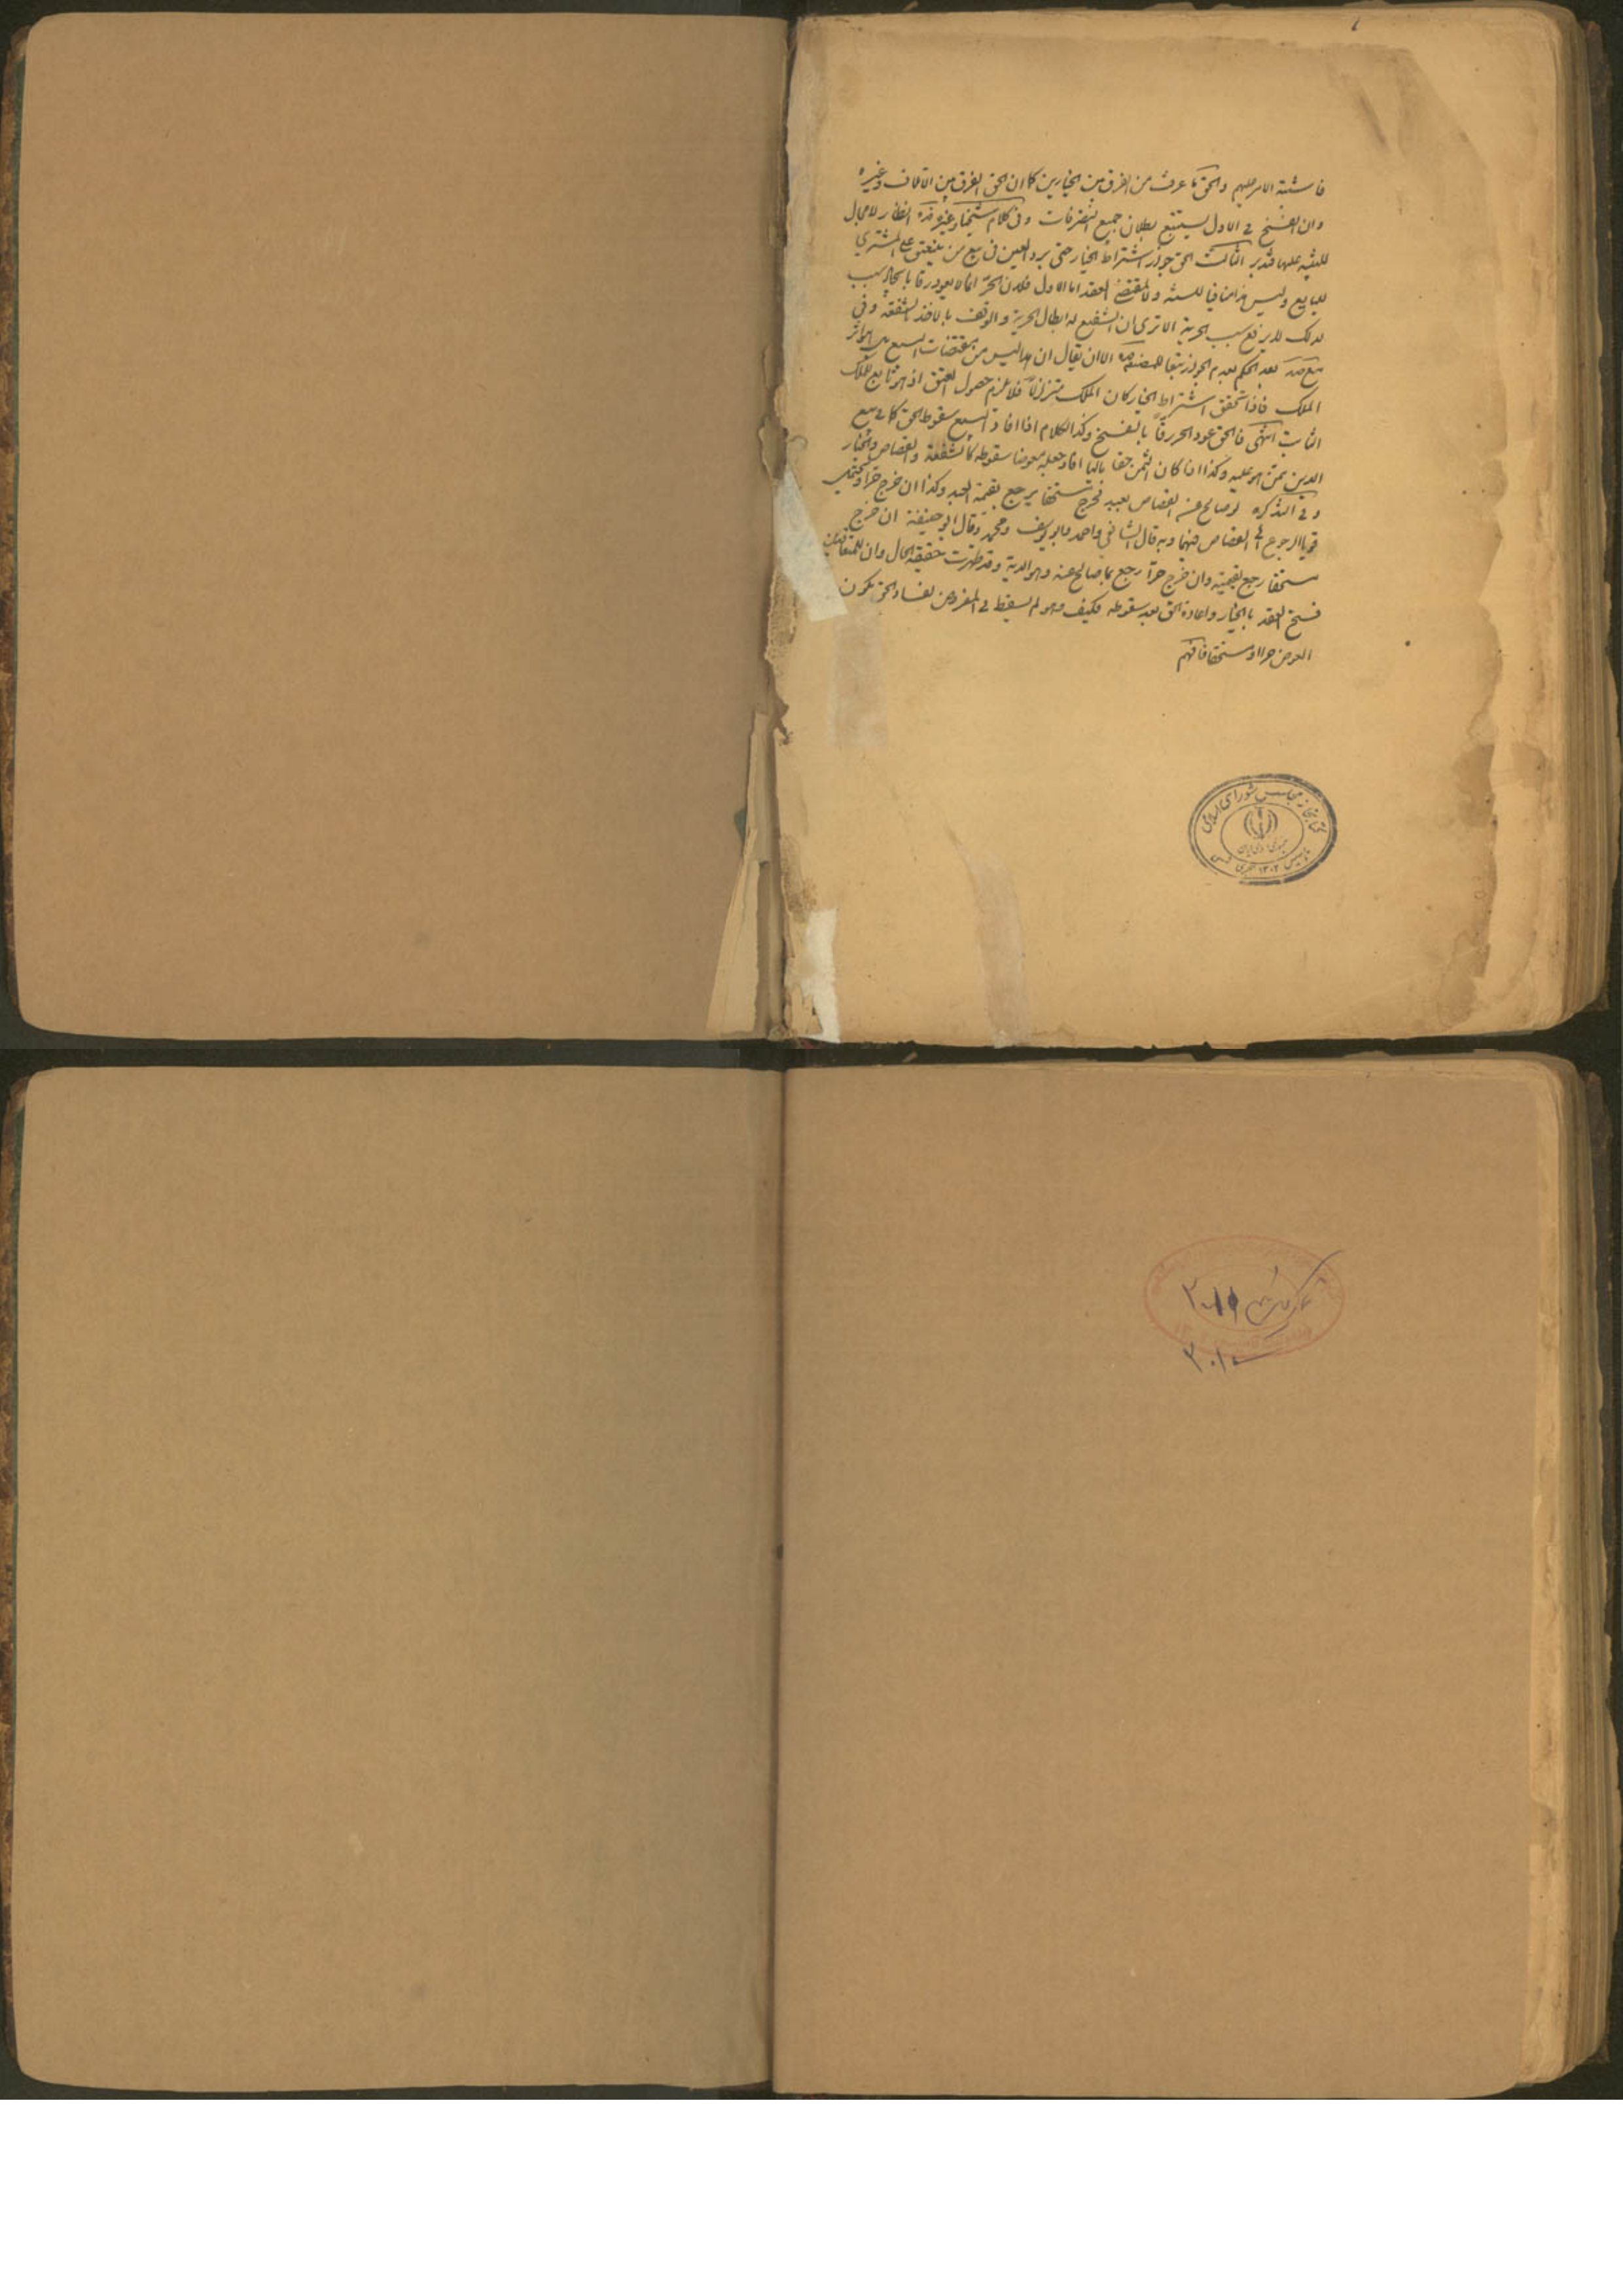 فاشتبه الامر عليهم والحق ما عرفت من الفرق بين الخيارين كما ان الحق الفرق بين الاتلاف وغيره
وان الفسخ في الاول يستتبع بطلان جميع التصرفات وفي كلام شيخنا وغيره هذه انظار لا مجال
للتنبيه عليها فتدبر الثالث الحق جواز اشتراط الخيار حتى برد العين في بيع من ينعتق على المشتري
للبايع وليس هذا منافيا للسنه ولا لمقتضى العقد اما الاول فلان الحر انما لا يعود رقا بايجاد سبب
لذلك لا برفع سبب الحرية الا ترى ان الشفيع له ابطال الحرية والوقف بالاخذ بالشفعة وفي
بعد الحكم بعدم الجواز تبعا الا ان يقال ان هذا ليس من مقتضيات البيع بل لوازم
الملك فاذا تحقق اشتراط الخيار كان الملك متزلزلا فلا يلزم حصول العتق اذ هو تابع للملك
الثابت انتهى فالحق عود الحر رقا بالفسخ وكذا الكلام اذا افاد البيع سقوط الحق كما في بيع
الدين بمن هو عليه وكذا اذا كان الثمن حقا ماليا افاد جعله عوضا سقوطه كالشفعة والقصاص والخيار
وفي التذكره لو صالح عن القصاص بعبد فخرج مستحقا يرجع بقيمة العبد وكذا ان خرج حرا ويحتمل
قويا الرجوع الى القصاص فيهما وبه قال الشافعي واحمد وابو يوسف ومحمد وقال ابو حنيفة ان خرج
مستحقا رجع بقيمته وان خرج حرا رجع بما صالح عنه وهو الدية وقد ظهرت حقيقة الحال وان للمتعاقدين
فسخ العقد بالخيار واعادة الحق بعد سقوطه فكيف وهو لم يسقط في المفروض لفساد الحق بكون
العوض حرا او مستحقا فافهم
كتابخانه مجلس شورای اسلامی
جمهوری اسلامی ایران
تاسیس ۱۳۰۲ هجری شمسی